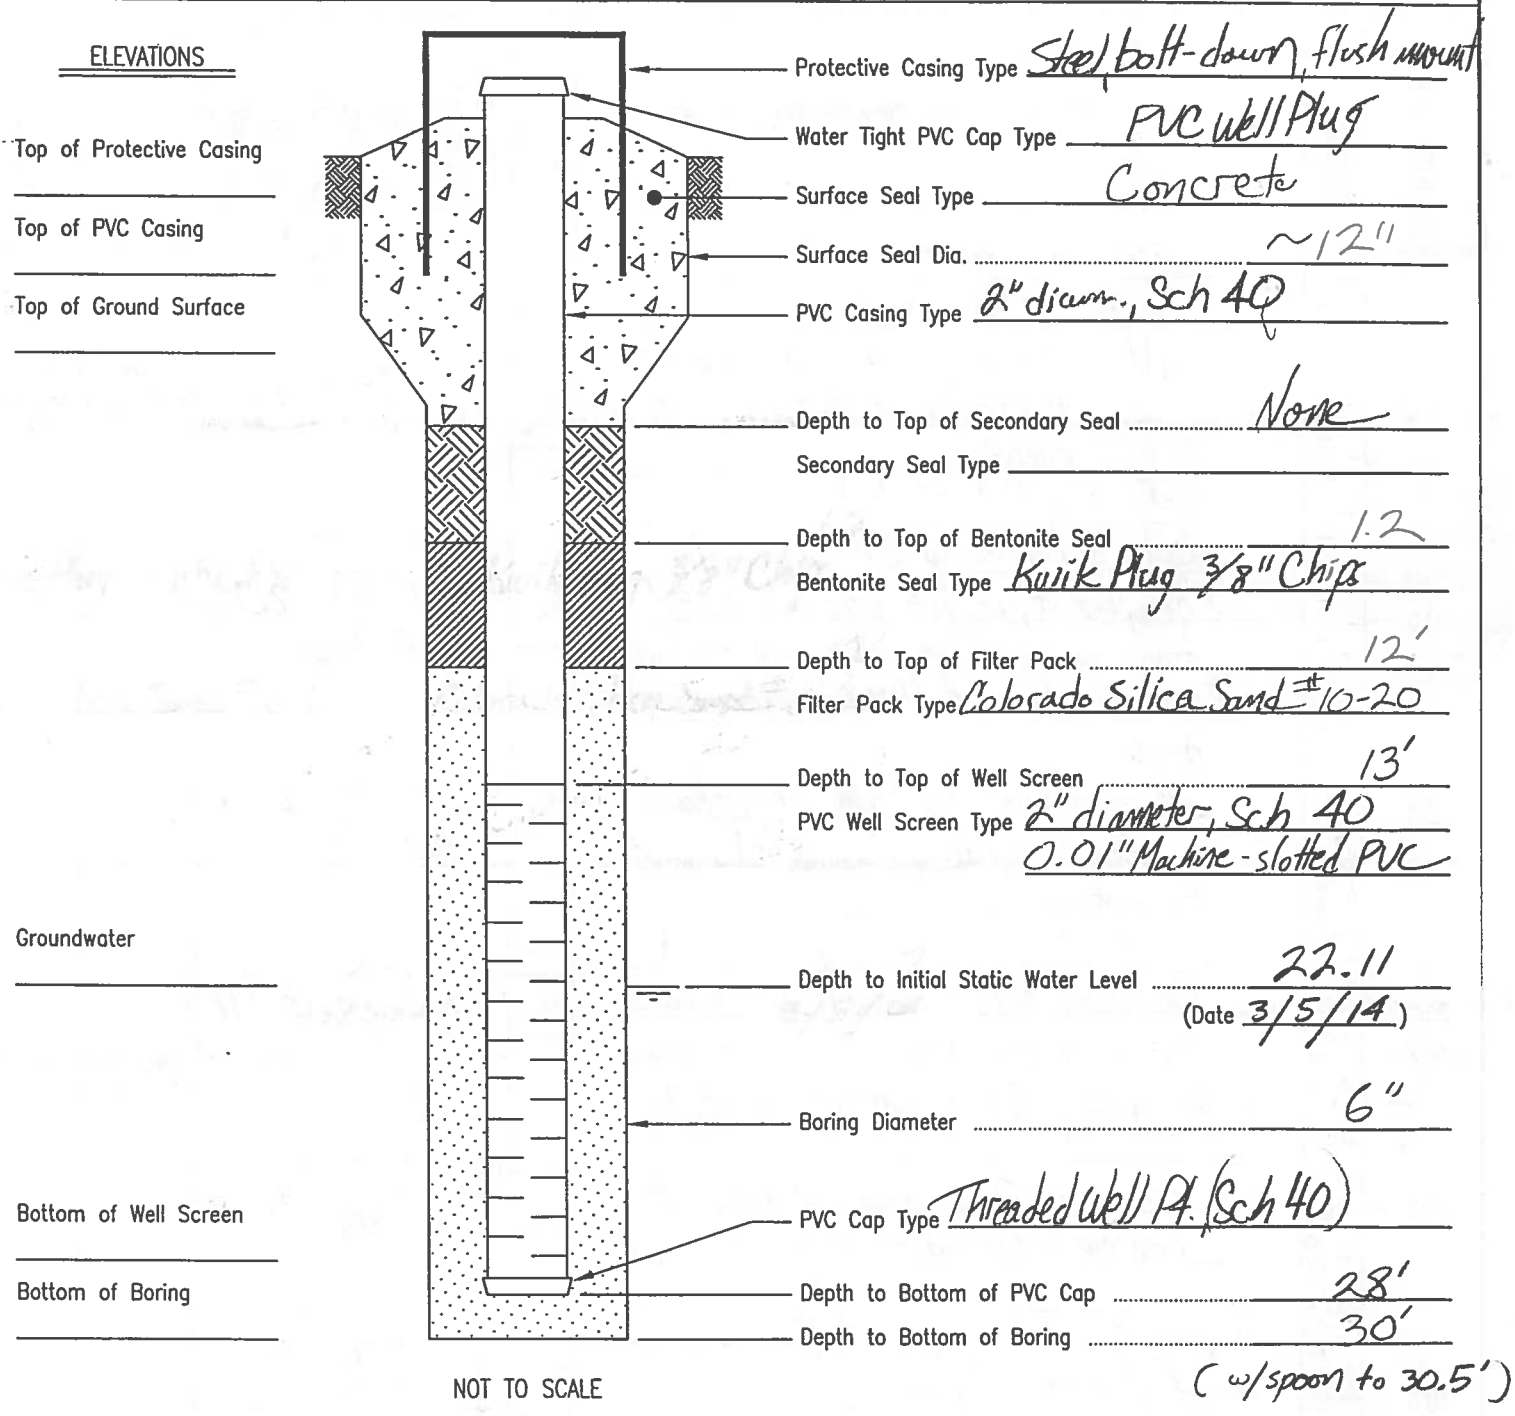 ELEVATIONS
Top of Protective Casing
Top of PVC Casing
Top of Ground Surface
Groundwater
Bottom of Well Screen
Bottom of Boring
Protective Casing Type Steel, bolt-down, flush mount
Water Tight PVC Cap Type PVC Well Plug
Surface Seal Type Concrete
Surface Seal Dia. ~12"
PVC Casing Type 2" diam., Sch 40
Depth to Top of Secondary Seal None
Secondary Seal Type
Depth to Top of Bentonite Seal 1.2
Bentonite Seal Type Kwik Plug 3/8" Chips
Depth to Top of Filter Pack 12'
Filter Pack Type Colorado Silica Sand #10-20
Depth to Top of Well Screen 13'
PVC Well Screen Type 2" diameter, Sch 40
0.01" Machine-slotted PVC
Depth to Initial Static Water Level 22.11
(Date 3/5/14)
Boring Diameter 6"
PVC Cap Type Threaded Well Pt. (Sch 40)
Depth to Bottom of PVC Cap 28'
Depth to Bottom of Boring 30'
(w/spoon to 30.5')
NOT TO SCALE